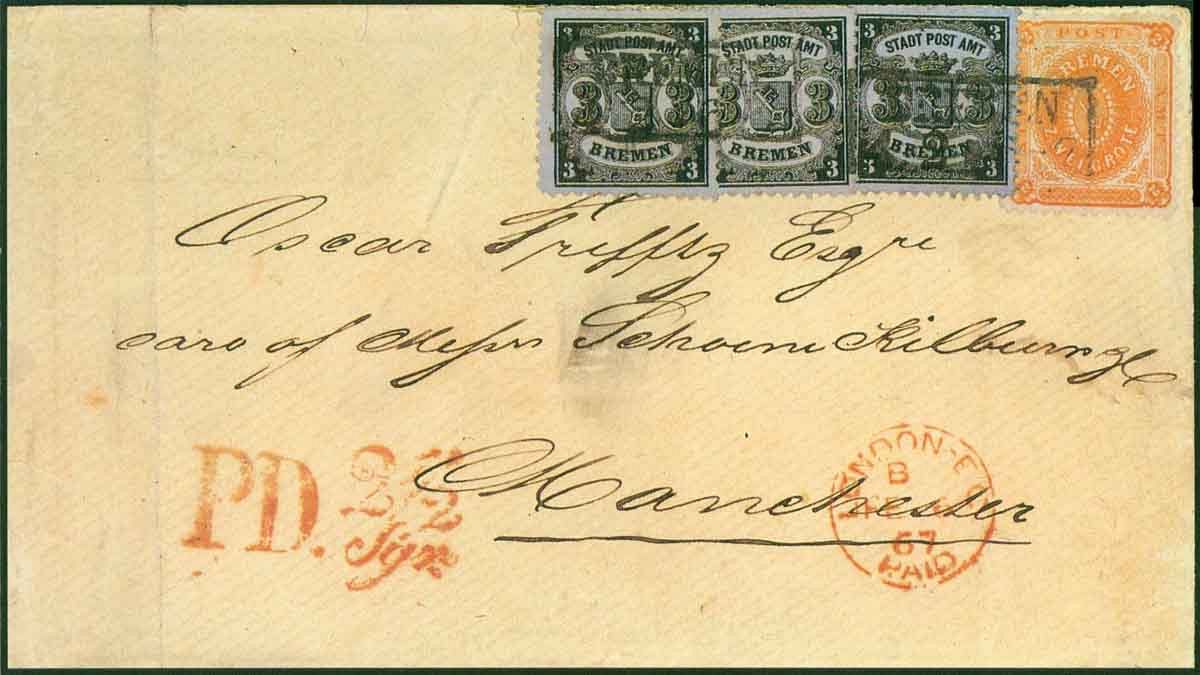 3 3 3 3 3 3 3
STADT POST AMT STADT POST AMT STADT POST AMT POST
BREMEN
3 3 3 3 3 3
ZWEI GROTE
BREMEN BREMEN BREMEN
3 3 3 3
Oscar Trefftz Esqre
care of Messrs Schoene Kilburn &c
PD. 2 1/2 Sgr.
Manchester
LONDON-E.C
B
SE
67
PAID